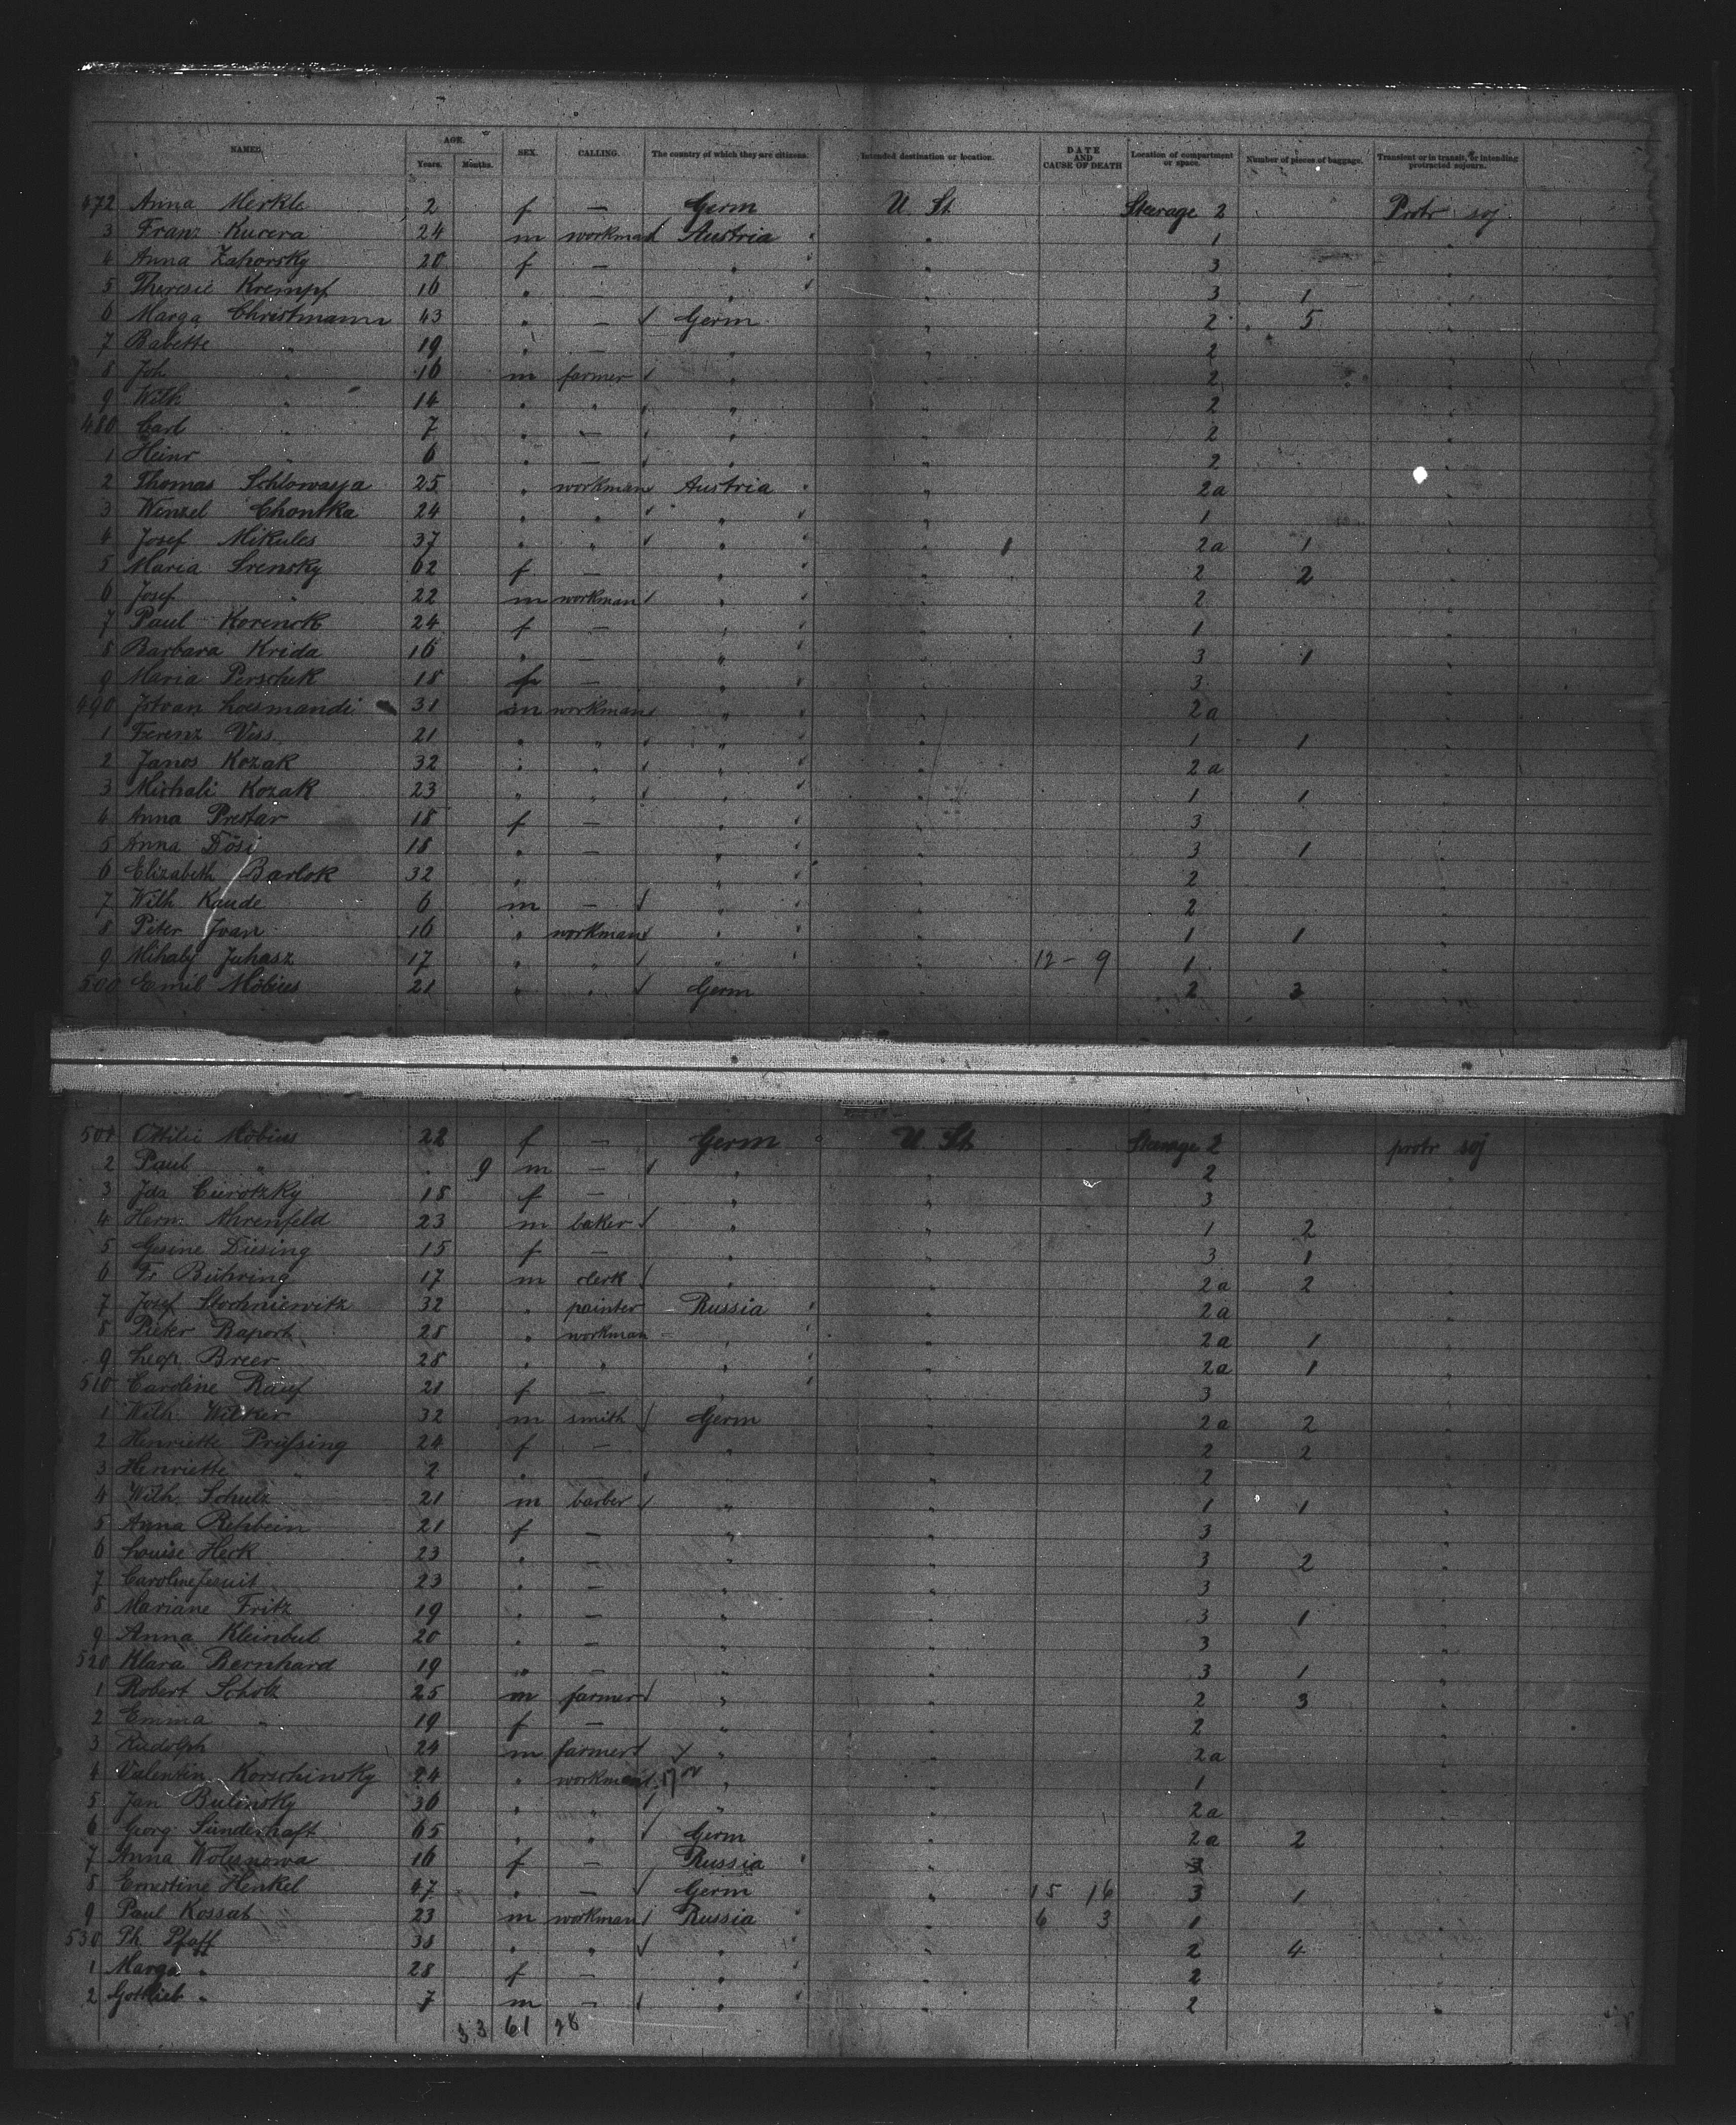 NAMES. AGE. Years. Months. SEX. CALLING. The country of which they are citizens. Intended destination or location. DATE AND CAUSE OF DEATH Location of compartment or space. Number of pieces of baggage. Transient or in transit, or intending protracted sojourn.
472 Anna Merkle 2 f — Germ U. St. Steerage 2 Protr soj
3 Franz Kucera 24 m workman Austria " 1 "
4 Anna Zahorsky 20 f — " " 3 "
5 Theresie Krempf 16 " — " " 3 1 "
6 Marga Christmann 43 " — Germ " 2 5 "
7 Babette " 19 " — " " 2 "
8 Joh " 16 m farmer " " 2 "
9 Wilh " 14 " " " " 2 "
480 Carl " 7 " — " " 2 "
1 Heinr " 6 " — " " 2 "
2 Thomas Schlowasja 25 " workman Austria " 2a "
3 Wenzel Chontka 24 " " " " 1 "
4 Josef Mikules 37 " " " " 2a 1 "
5 Maria Srensky 62 f — " " 2 2 "
6 Josef " 22 m workman " " 2 "
7 Paul Korenck 24 f — " " 1 "
8 Barbara Krida 16 " — " " 3 1 "
9 Maria Perschek 18 f — " " 3 "
490 Istvan 31 m workman " " 2a "
1 Ferenz Viss 21 " " " " 1 1 "
2 Janos Kozak 32 " " " " 2a "
3 Michali Kozak 23 " " " " 1 1 "
4 Anna Prestar 18 f — " " 3 "
5 Anna Dösi 18 " — " " 3 1 "
6 Elizabeth Barlok 32 " " " 2 "
7 Wilh Kaude 6 m — " " 2 "
8 Peter Ivan 16 " workman " " 1 1 "
9 Mihaly Juhasz 17 " " " " 12 - 9 1 "
500 Emil Möbius 21 " " Germ 2 3
501 Ottilie Möbius 22 f — Germ U. St. Steerage 2 protr soj
2 Paul " 9 m — " " 2 "
3 Ida Curotzky 18 f — " " 3 "
4 Herm. Ahrenfeld 23 m baker " " 1 2 "
5 Gesine Diesing 15 f — " " 3 1 "
6 Fr Bühring 17 m clerk " " 2a 2 "
7 Josef Stochniewitz 32 " painter Russia " 2a "
8 Pieter Raport 28 " workman " " 2a 1 "
9 Leop Breer 28 " " " " 2a 1 "
510 Caroline Rauf 21 f — " " 3 "
1 Wilh. Wilker 32 m smith Germ " 2a 2 "
2 Henriette Prüssing 24 f — " " 2 2 "
3 Henriette " 2 " " " 2 "
4 Wilh. Schulz 21 m barber " " 1 1 "
5 Anna Rehbein 21 f — " " 3 "
6 Louise Herk 23 " — " " 3 2 "
7 Caroline Jesuit 23 " — " " 3 "
8 Mariane Fritz 19 " — " " 3 1 "
9 Anna Kleinbul 20 " — " " 3 "
520 Klara Bernhard 19 " — " " 3 1 "
1 Robert Scholz 25 m farmer " " 2 3 "
2 Emma " 19 f — " " 2 "
3 Rudolph 24 m farmer " " 2a "
4 Valentin Korschinsky 24 " workman " " 1 "
5 Jan Bulinsky 36 " " " " 2a "
6 Georg Sünderhaft 65 " " Germ " 2a 2 "
7 Anna Wolesnowa 16 f — Russia " 3 "
8 Ernestine Henkel 47 " — Germ " 15 16 3 1 "
9 Paul Kossat 23 m workman Russia " 6 3 1 "
530 Ph. Pfaff 38 " " " " 2 4 "
1 Marga " 28 f — " " 2 "
2 Gottlieb " 7 m — " " 2 "
33 61 28